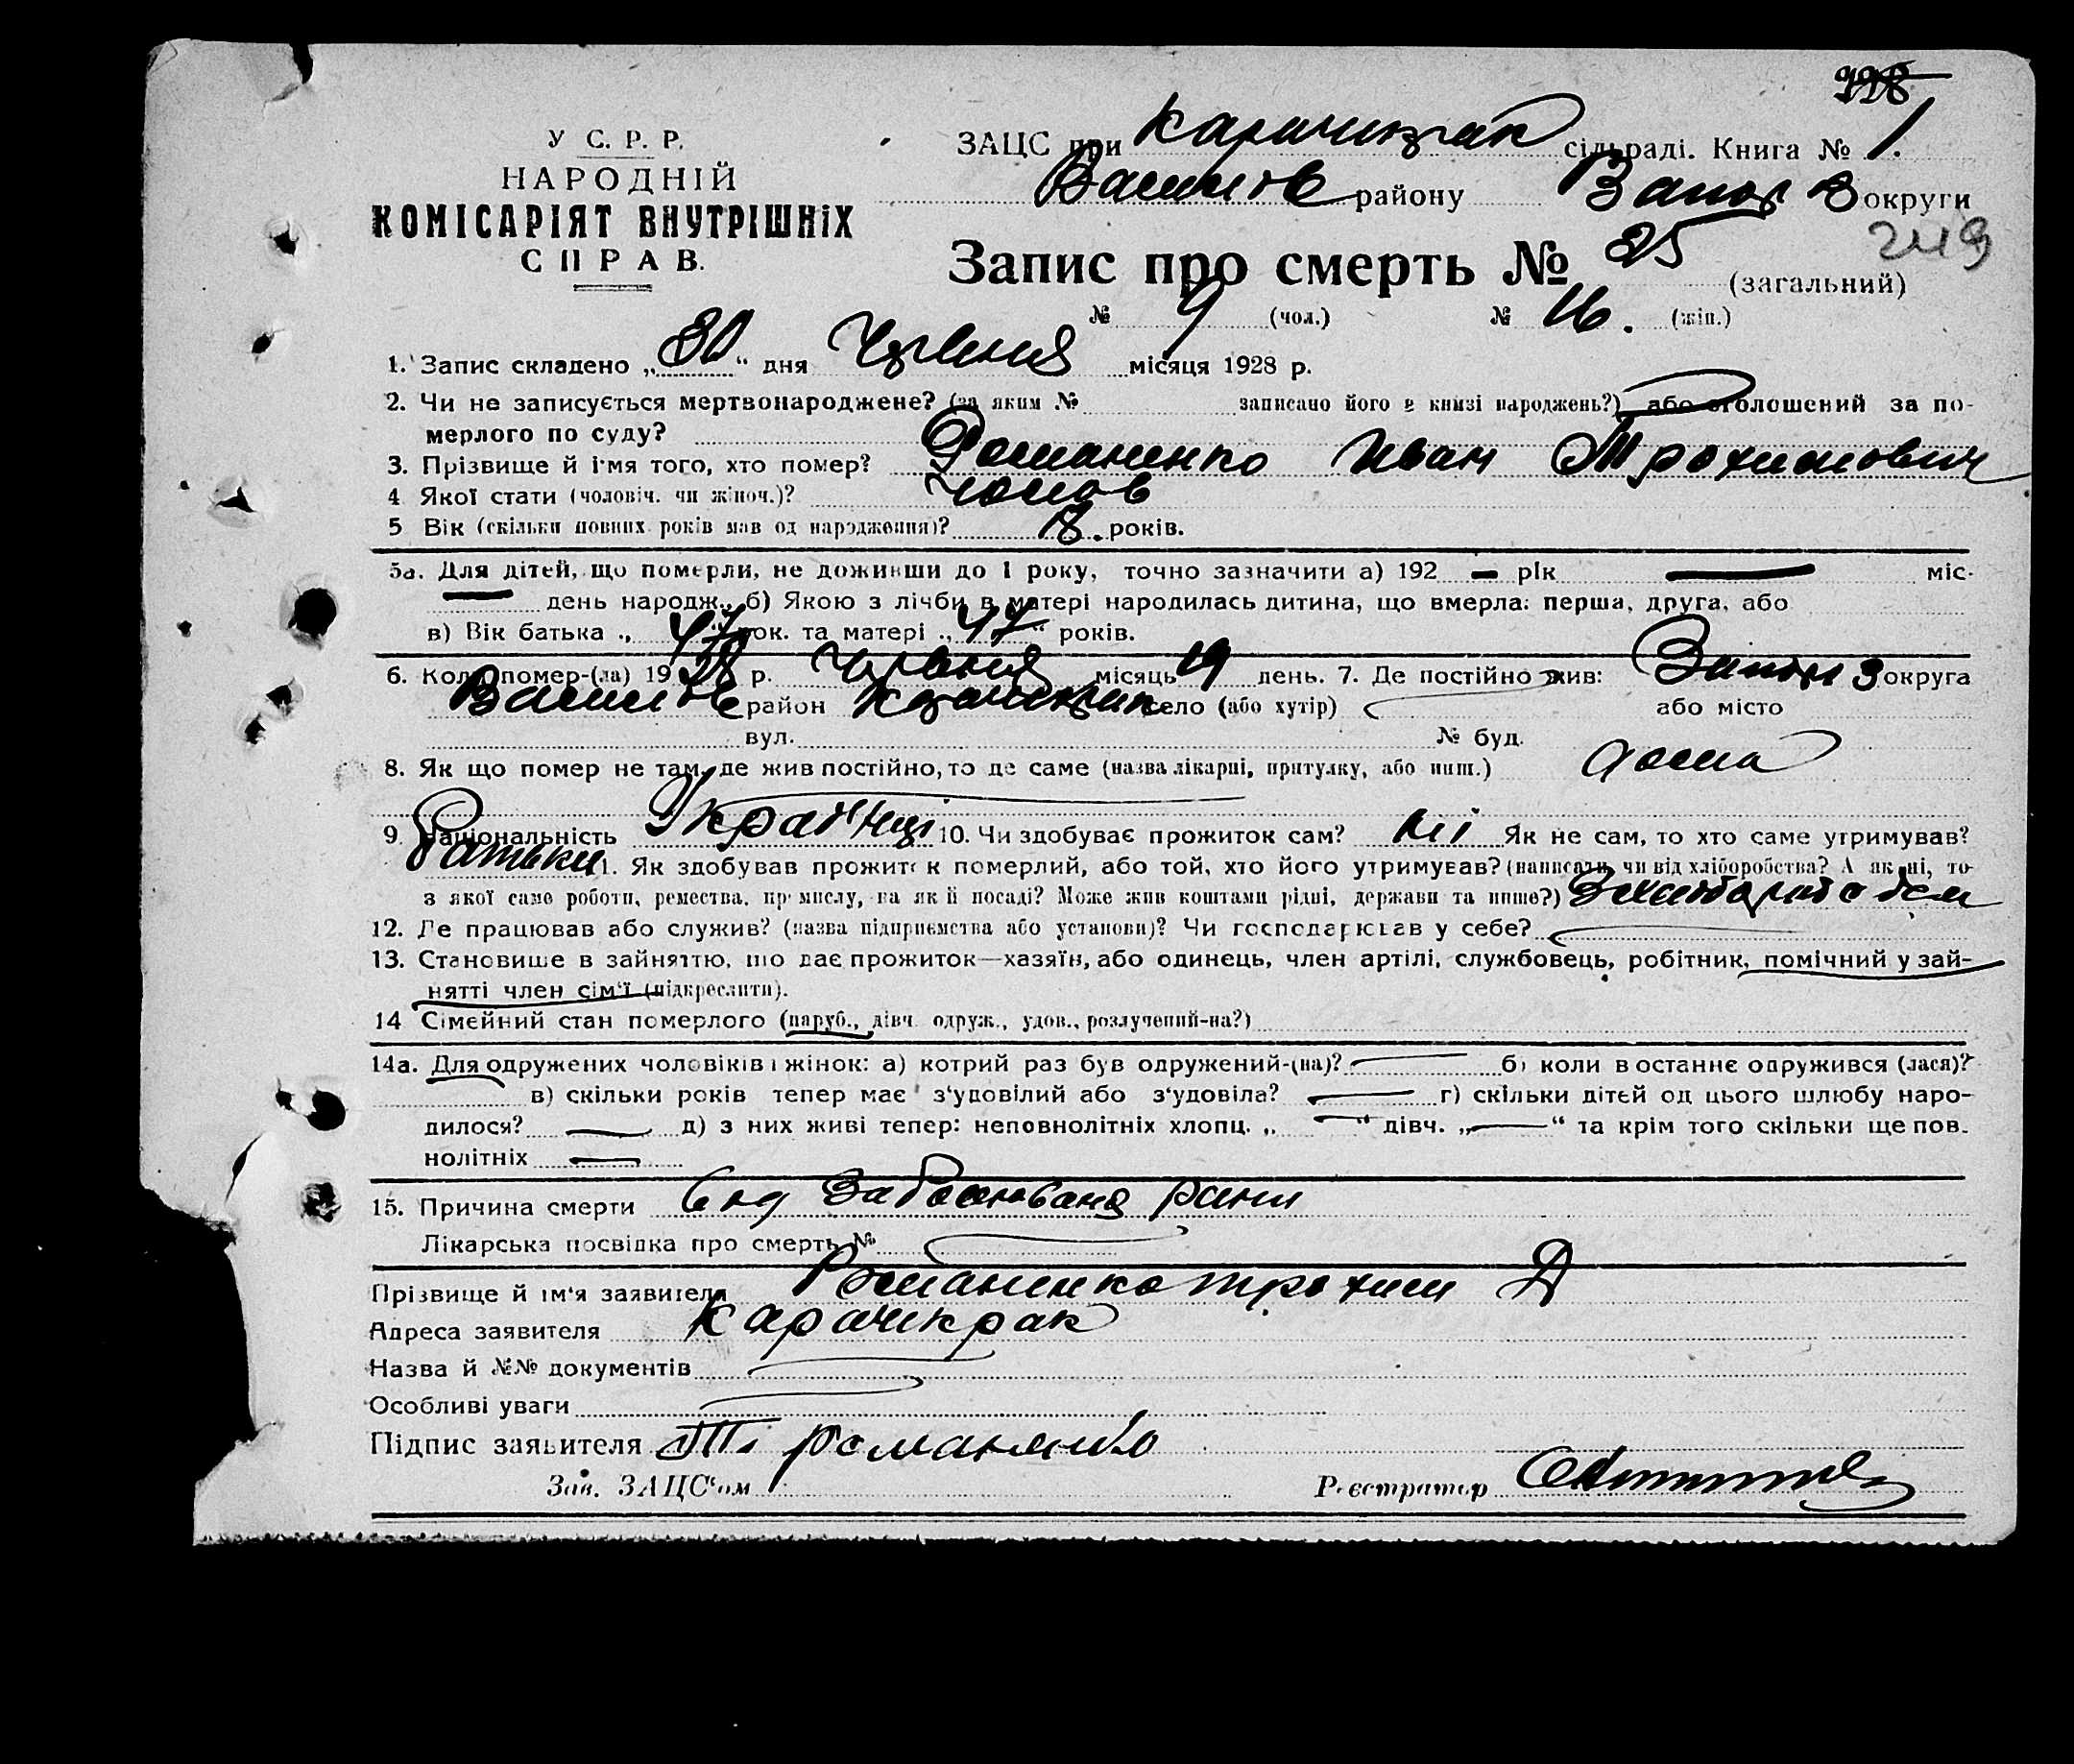 928
У С. Р. Р.
НАРОДНІЙ
КОМІСАРІЯТ ВНУТРІШНІХ
СПРАВ.
ЗАЦС при Карачикрак сільраді. Книга № 1.
Василів району Запоріз округи
249
Запис про смерть № 25 (загальний)
№ 9 (чол.) № 16. (жін.)
1. Запис складено „30“ дня Червня місяця 1928 р.
2. Чи не записується мертвонароджене? (за яким № записано його в книзі народжень?) або оголошений за по-
мерлого по суду?
3. Прізвище й ім'я того, хто помер? Романенко Иван Трохимович
4 Якої стати (чоловіч. чи жіноч.)? чолов
5 Вік (скільки повних років мав од народження)? 18. років.
5а. Для дітей, що померли, не доживши до 1 року, точно зазначити а) 192 — рік — міс.
— день народж., б) Якою з лічби в матері народилась дитина, що вмерла: перша, друга, або
в) Вік батька „47“ рок. та матері „47“ років.
6. Коли помер-(ла) 1928 р. Червня місяць 19 день. 7. Де постійно жив: Запоріз округа
Василів район Карачикрак село (або хутір) або місто
вул. № буд.
8. Як що помер не там, де жив постійно, то де саме (назва лікарні, притулку, або инш.) дома
9. Національність Українці 10. Чи здобуває прожиток сам? ні Як не сам, то хто саме утримував?
батьки 11. Як здобував прожиток померлий, або той, хто його утримував? (написати, чи від хліборобства? А як ні, то
з якої саме роботи, ремества, промислу, на якій посаді? Може жив коштами рідні, держави та инше?)
12. Де працював або служив? (назва підприємства або установи)? Чи господарював у себе?
13. Становище в зайняттю, що дає прожиток—хазяїн, або одинець, член артілі, службовець, робітник, помічний у зай-
нятті член сім'ї (підкреслити).
14 Сімейний стан померлого (паруб., дівч. одруж., удов., розлучений-на?)
14а. Для одружених чоловіків і жінок: а) котрий раз був одружений-(на)? — б) коли в останнє одружився (лася)?
в) скільки років тепер має з'удовілий або з'удовіла? — г) скільки дітей од цього шлюбу наро-
дилося? — д) з них живі тепер: неповнолітніх хлопц. „—“ дівч. „—“ та крім того скільки ще пов-
нолітніх —
15. Причина смерти від заболювання рани
Лікарська посвідка про смерть №
Прізвище й ім'я заявителя Романенко Трохим Д
Адреса заявителя Карачикрак
Назва й №№ документів
Особливі уваги
Підпис заявителя Т. Романенко
Зав. ЗАЦС'ом
Реєстратор